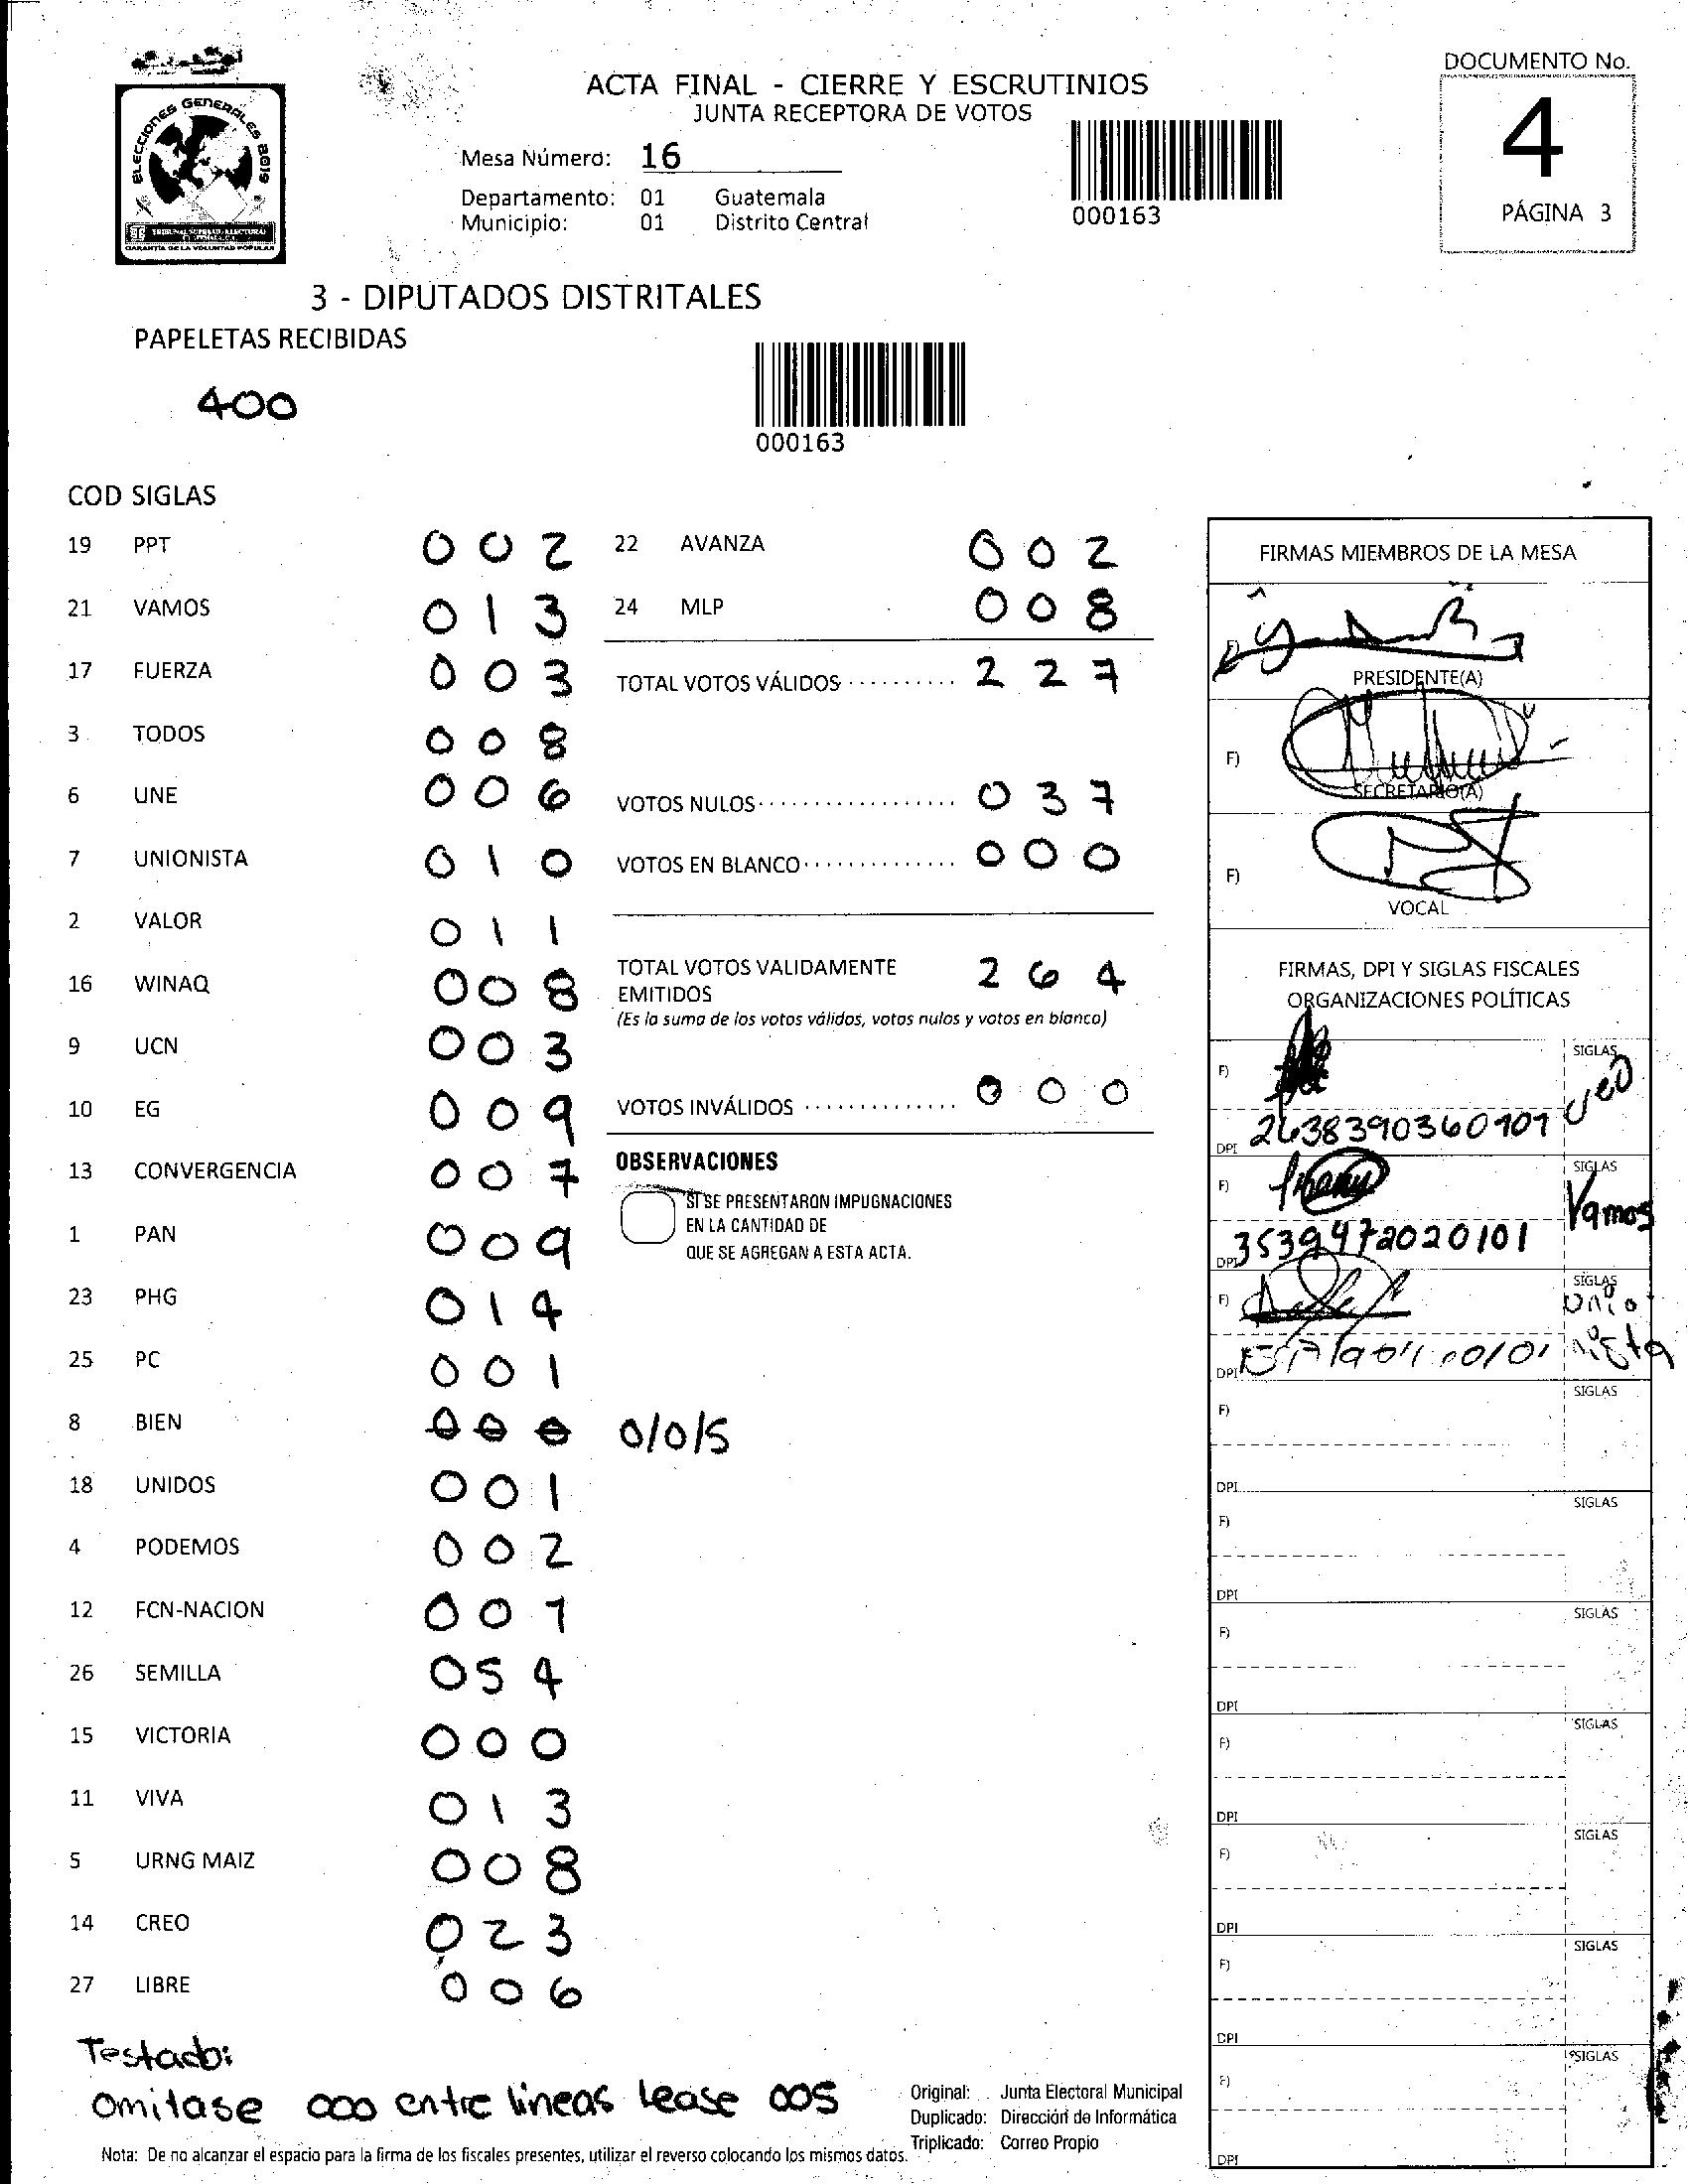 DOCUMENTO No.
4
PÁGINA 3
ELECCIONES GENERALES 2019
TRIBUNAL SUPREMO ELECTORAL
GARANTÍA DE LA VOLUNTAD POPULAR
ACTA FINAL - CIERRE Y ESCRUTINIOS
JUNTA RECEPTORA DE VOTOS
Mesa Número: 16
Departamento: 01 Guatemala
Municipio: 01 Distrito Central
000163
3 - DIPUTADOS DISTRITALES
PAPELETAS RECIBIDAS
400
000163
COD SIGLAS
19 PPT 0 0 2
21 VAMOS 0 1 3
17 FUERZA 0 0 3
3 TODOS 0 0 8
6 UNE 0 0 6
7 UNIONISTA 0 1 0
2 VALOR 0 1 1
16 WINAQ 0 0 8
9 UCN 0 0 3
10 EG 0 0 9
13 CONVERGENCIA 0 0 7
1 PAN 0 0 9
23 PHG 0 1 4
25 PC 0 0 1
8 BIEN 0 0 0 0/0/5
18 UNIDOS 0 0 1
4 PODEMOS 0 0 2
12 FCN-NACION 0 0 1
26 SEMILLA 0 5 4
15 VICTORIA 0 0 0
11 VIVA 0 1 3
5 URNG MAIZ 0 0 8
14 CREO 0 2 3
27 LIBRE 0 0 6
22 AVANZA 0 0 2
24 MLP 0 0 8
TOTAL VOTOS VÁLIDOS .......... 2 2 7
VOTOS NULOS .................. 0 3 7
VOTOS EN BLANCO .............. 0 0 0
TOTAL VOTOS VALIDAMENTE
EMITIDOS 2 6 4
(Es la suma de los votos válidos, votos nulos y votos en blanco)
VOTOS INVÁLIDOS .............. 0 0 0
OBSERVACIONES
SI SE PRESENTARON IMPUGNACIONES
EN LA CANTIDAD DE
QUE SE AGREGAN A ESTA ACTA.
FIRMAS MIEMBROS DE LA MESA
F)
PRESIDENTE(A)
F)
SECRETARIO(A)
F)
VOCAL
FIRMAS, DPI Y SIGLAS FISCALES
ORGANIZACIONES POLÍTICAS
F) SIGLAS
DPI 2638390360101
F) SIGLAS Vamos
DPI 3539472020101
F) SIGLAS Unio
DPI nista
F) SIGLAS
DPI
F) SIGLAS
DPI
F) SIGLAS
DPI
F) SIGLAS
DPI
F) SIGLAS
DPI
F) SIGLAS
DPI
F) SIGLAS
DPI
Testado:
Omitase 000 entre lineas Lease 005
Original: Junta Electoral Municipal
Duplicado: Dirección de Informática
Triplicado: Correo Propio
Nota: De no alcanzar el espacio para la firma de los fiscales presentes, utilizar el reverso colocando los mismos datos.